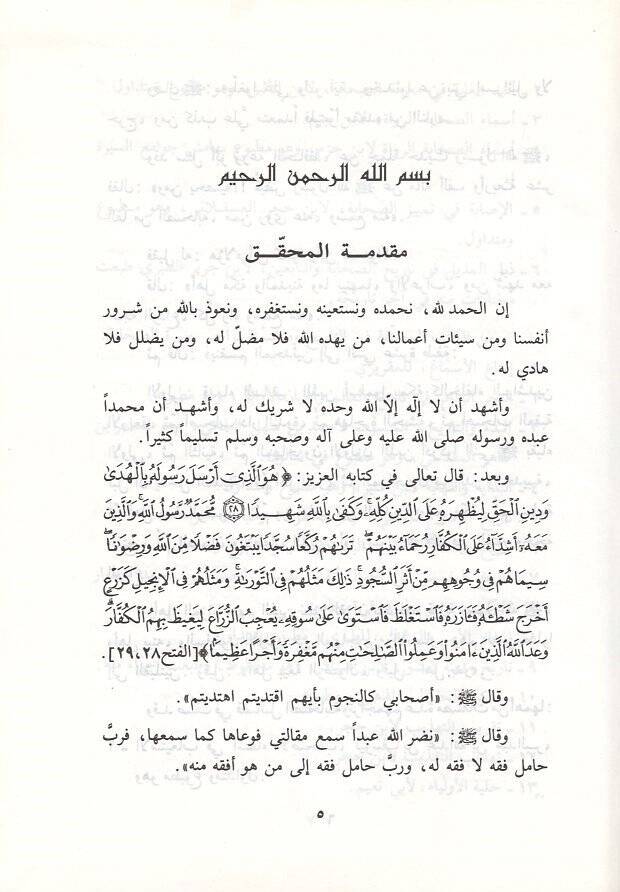 بسم الله الرحمن الرحيم
مقدمة المحقّق
إن الحمد لله، نحمده ونستعينه ونستغفره، ونعوذ بالله من شرور
أنفسنا ومن سيئات أعمالنا، من يهده الله فلا مضلّ له، ومن يضلل فلا
هادي له.
وأشهد أن لا إله إلاّ الله وحده لا شريك له، وأشهد أن محمداً
عبده ورسوله صلى الله عليه وعلى آله وصحبه وسلم تسليماً كثيراً.
وبعد: قال تعالى في كتابه العزيز: ﴿هُوَ ٱلَّذِىٓ أَرْسَلَ رَسُولَهُۥ بِٱلْهُدَىٰ
وَدِينِ ٱلْحَقِّ لِيُظْهِرَهُۥ عَلَى ٱلدِّينِ كُلِّهِۦ وَكَفَىٰ بِٱللَّهِ شَهِيدًا ﴿٢٨﴾ مُّحَمَّدٌ رَّسُولُ ٱللَّهِ وَٱلَّذِينَ
مَعَهُۥٓ أَشِدَّآءُ عَلَى ٱلْكُفَّارِ رُحَمَآءُ بَيْنَهُمْ تَرَىٰهُمْ رُكَّعًا سُجَّدًا يَبْتَغُونَ فَضْلًا مِّنَ ٱللَّهِ وَرِضْوَٰنًا
سِيمَاهُمْ فِى وُجُوهِهِم مِّنْ أَثَرِ ٱلسُّجُودِ ذَٰلِكَ مَثَلُهُمْ فِى ٱلتَّوْرَىٰةِ وَمَثَلُهُمْ فِى ٱلْإِنجِيلِ كَزَرْعٍ
أَخْرَجَ شَطْـَٔهُۥ فَـَٔازَرَهُۥ فَٱسْتَغْلَظَ فَٱسْتَوَىٰ عَلَىٰ سُوقِهِۦ يُعْجِبُ ٱلزُّرَّاعَ لِيَغِيظَ بِهِمُ ٱلْكُفَّارَ
وَعَدَ ٱللَّهُ ٱلَّذِينَ ءَامَنُوا۟ وَعَمِلُوا۟ ٱلصَّٰلِحَٰتِ مِنْهُم مَّغْفِرَةً وَأَجْرًا عَظِيمًا﴾ [الفتح ٢٨، ٢٩].
وقال ﷺ: «أصحابي كالنجوم بأيهم اقتديتم اهتديتم».
وقال ﷺ: «نضر الله عبداً سمع مقالتي فوعاها كما سمعها، فربَّ
حامل فقه لا فقه له، وربَّ حامل فقه إلى من هو أفقه منه».
٥